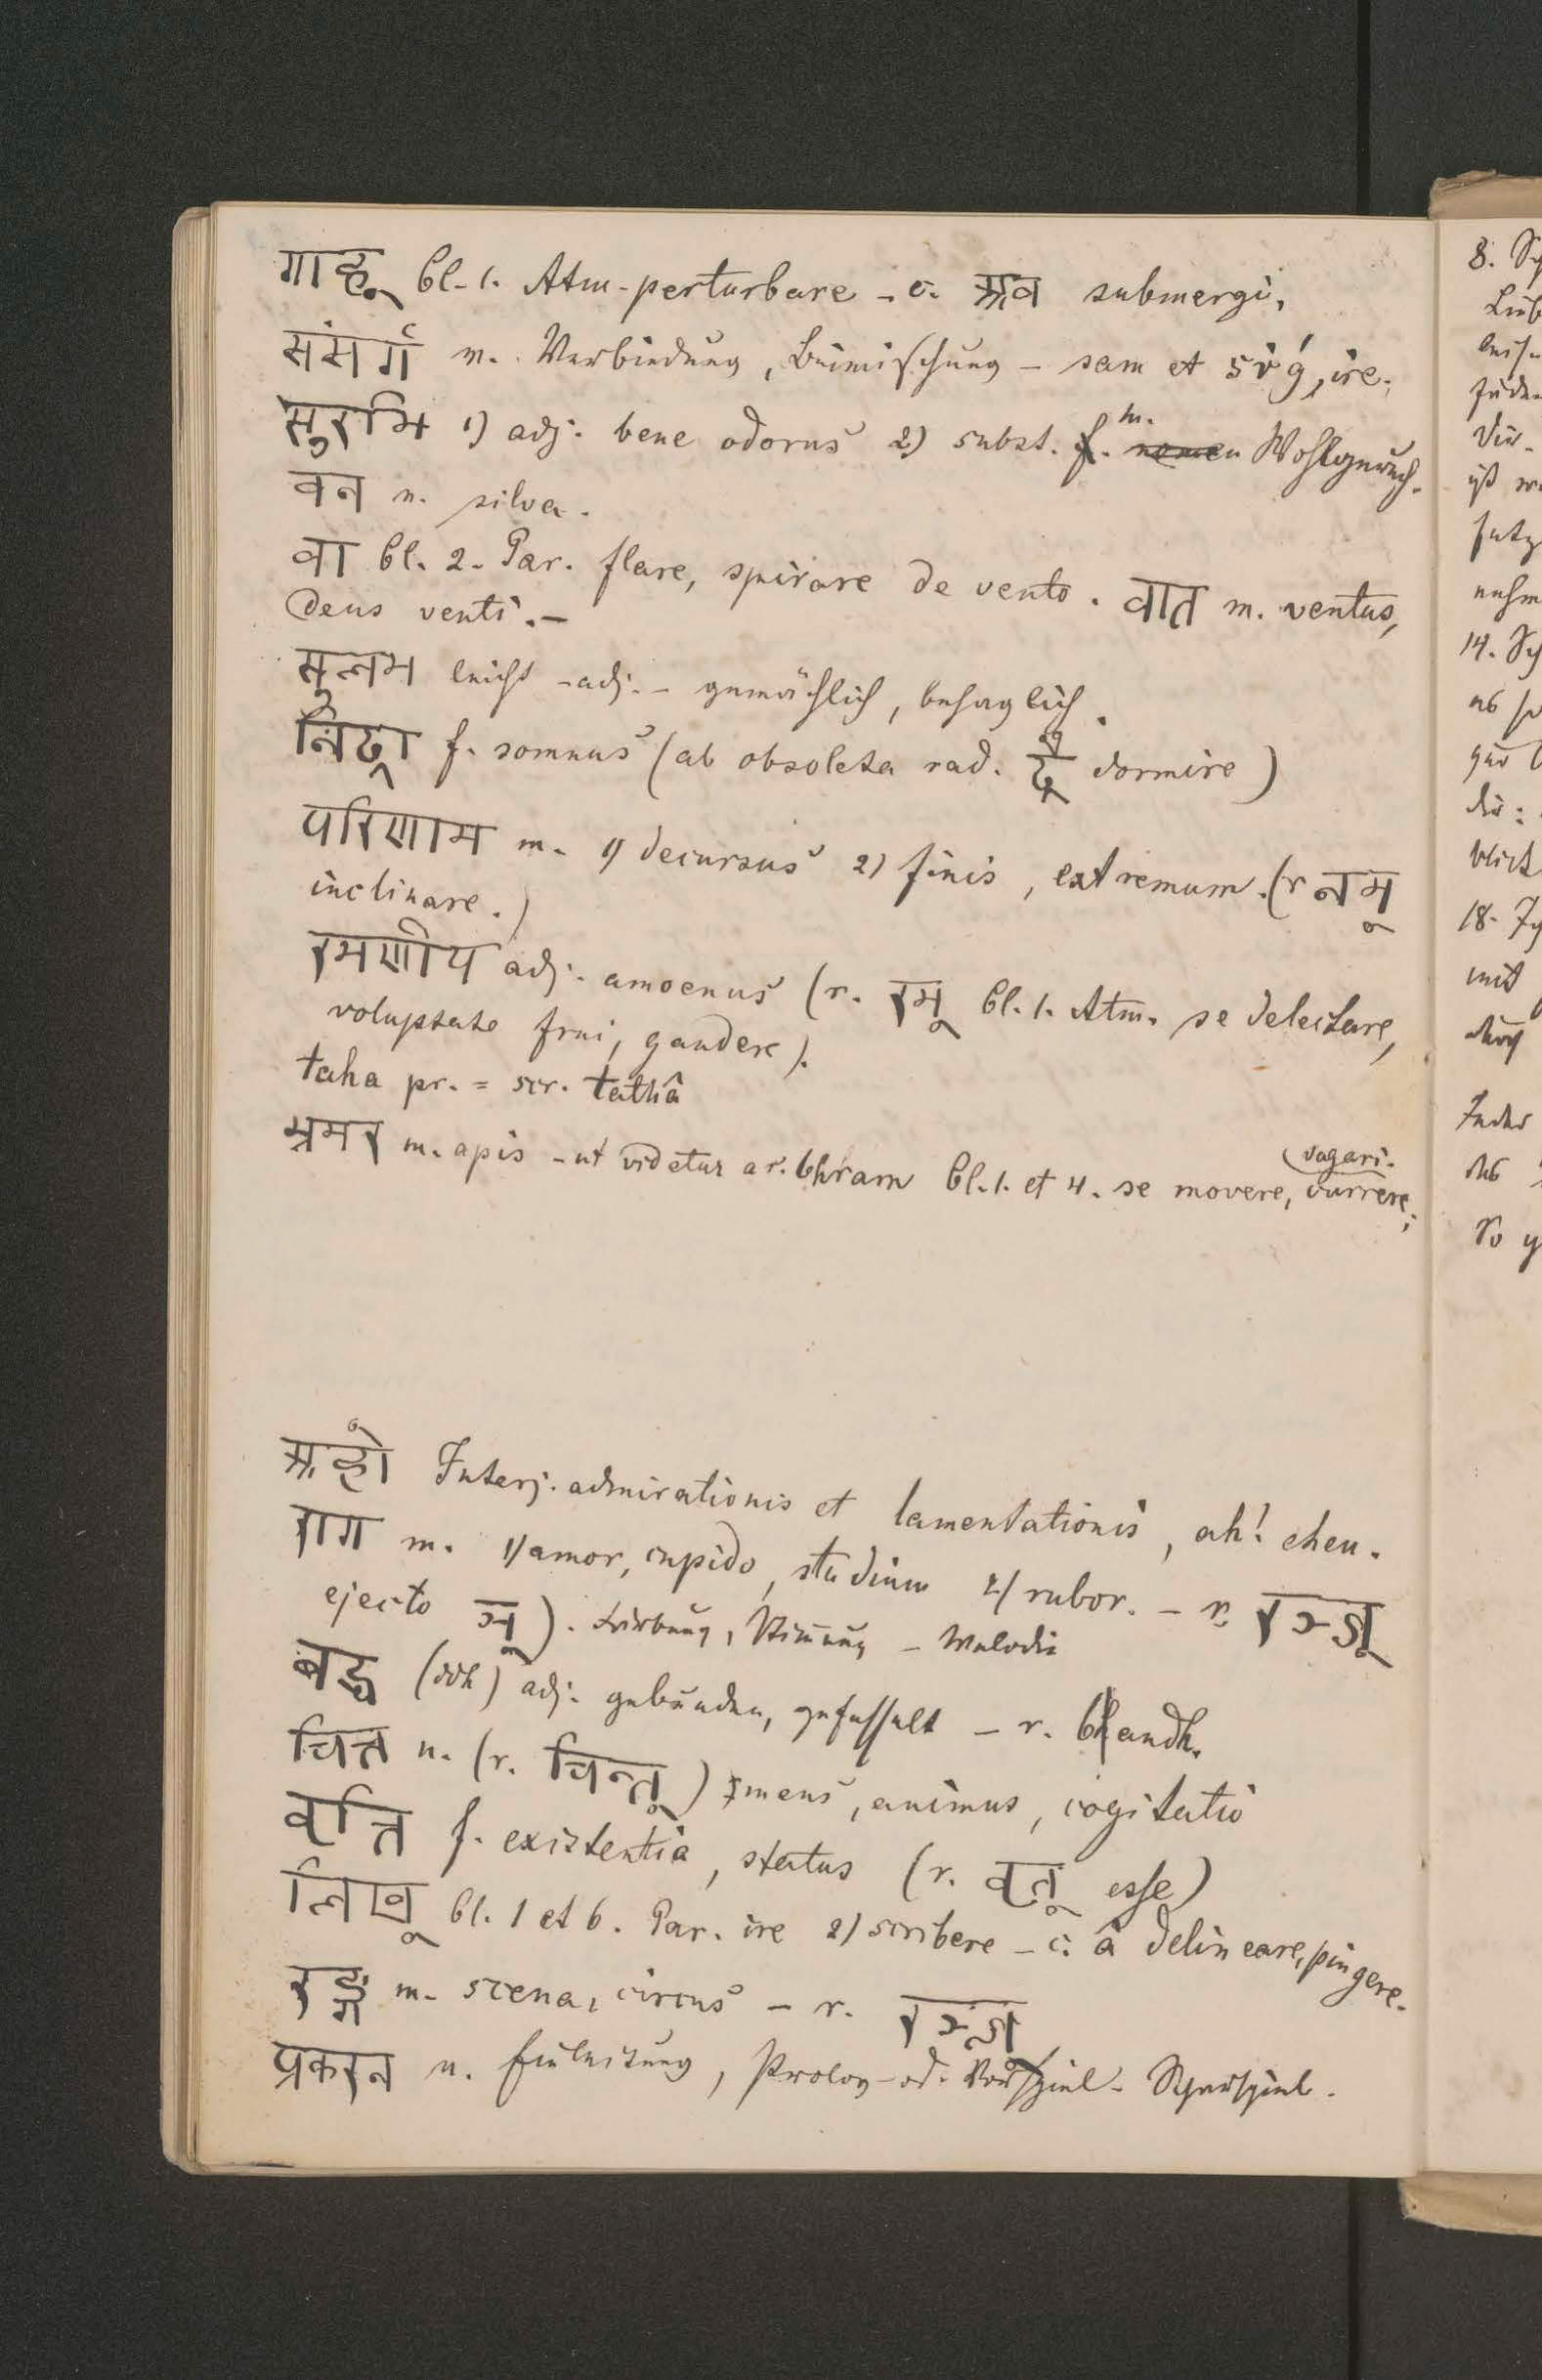 गाह् Cl. 1. Atm. perturbare - c. अव submergi,
संसर्ग m. Verbindung, Beimischung - sam et sṛǵ, ire.
सुरभि 1) adj. bene odorus 2) subst. f. m. Wohlgeruch.
वन n. silva.
वा Cl. 2. Par. flare, spirare de vento. वात m. ventus,
deus venti. -
सुलभ leicht - adj. - gemächlich, behaglich.
निद्रा f. somnus (ab obsoleta rad. dormire)
परिणाम m. 1) decursus 2) finis, extremum. (r नम्
inclinare.)
रमणीय adj. amoenus (r. रम् Cl. 1. Atm. se delectare,
voluptate frui, gaudere).
taha pr. = scr. tathâ
भ्रमर m. apis - ut videtur a r. bhram Cl. 1. et 4. se movere, vagari. currere;
अहो Interj. admirationis et lamentationis, ah! eheu.
राग m. 1) amor, cupido, studium 2) rubor. - r. रञ्ज्
ejecto ञ्). Färbung, Stimmung - Melodie
बद्ध (ddh) adj. gebunden, gefesselt - r. bandh.
चित्त n. (r. चिन्त्) mens, animus, cogitatio
वृत्ति f. existentia, status (r. वृत् esse)
लिख् Cl. 1 et 6. Par. ire 2) scribere - c. â delineare, pingere.
रङ्ग m. scena, circus - r. रञ्ज्
प्रकरन n. Einleitung, Prolog - od. Vorspiel. Schauspiel.
8.
14.
18.
mit